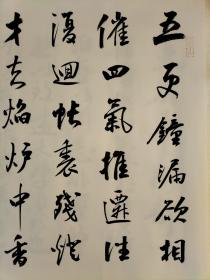 五更鐘漏欲相
催四氣推遷往
復迴帳裏殘燈
才去焰炉中香